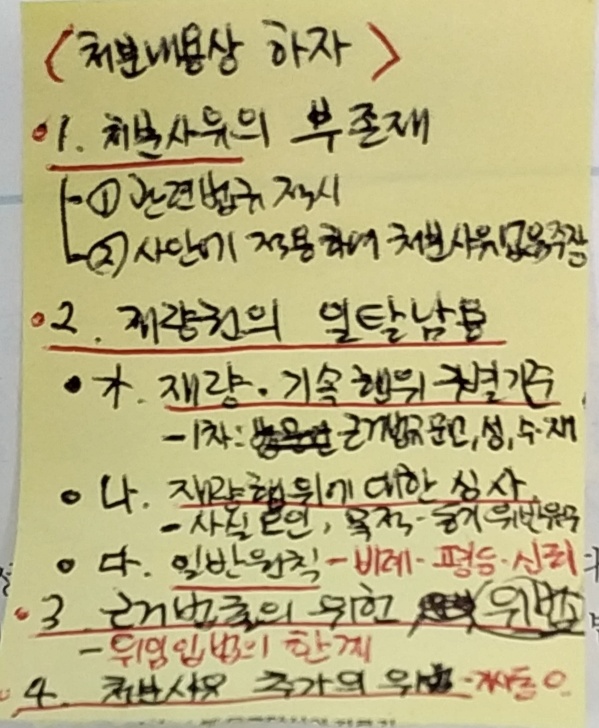 <처분내용상 하자>
1. 처분사유의 부존재
① 관련법규 적시
② 사안에 적용하여 처분사유 없음 주장
2. 재량권의 일탈남용
가. 재량·기속행위 구별기준
-1차: 근거법규 문언, 성, 수·재
나. 재량행위에 대한 심사
-사실오인, 목적·동기 위반유무
다. 일반원칙 -비례·평등·신뢰
3 근거법률의 위헌 위법
-위임입법의 한계
4. 처분사유 추가의 위법